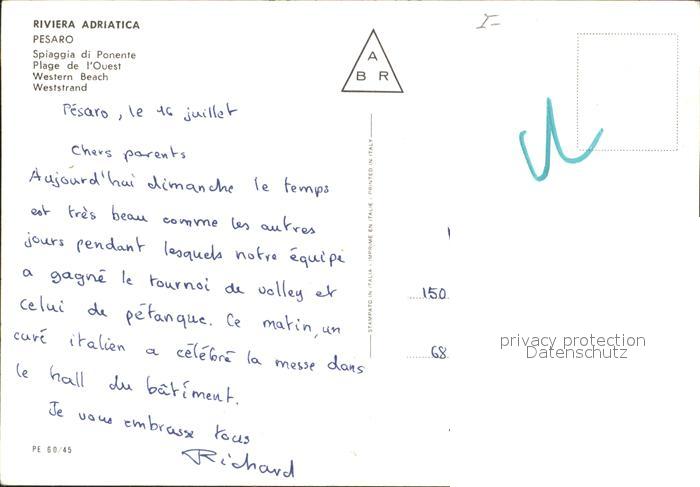 RIVIERA ADRIATICA
PESARO
Spiaggia di Ponente
Plage de l'Ouest
Western Beach
Weststrand
Pésaro, le 16 juillet
Chers parents
Aujourd'hui dimanche le temps
est très beau comme les autres
jours pendant lesquels notre équipe
a gagné le tournoi de volley et
celui de pétanque. Ce matin, un
curé italien a célébré la messe dans
le hall du bâtiment.
Je vous embrasse tous
Richard
PE 60/45
A
B R
STAMPATO IN ITALIA - IMPRIMÉ EN ITALIE - PRINTED IN ITALY
150
68
privacy protection
Datenschutz